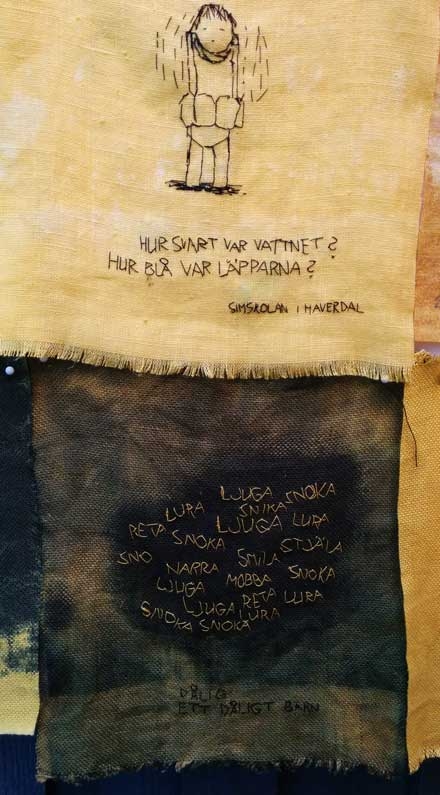 HUR SVART VAR VATTNET?
HUR BLÅ VAR LÄPPARNA?
SIMSKOLAN I HAVERDAL
LJUGA SNOKA
LURA SNIKA
RETA SNOKA LJUGA LURA
SNO NARRA SMILA STJÄLA
LJUGA MOBBA SNOKA
LJUGA RETA LURA
SNOKA SNOKA LURA
DÅLIG
ETT DÅLIGT BARN